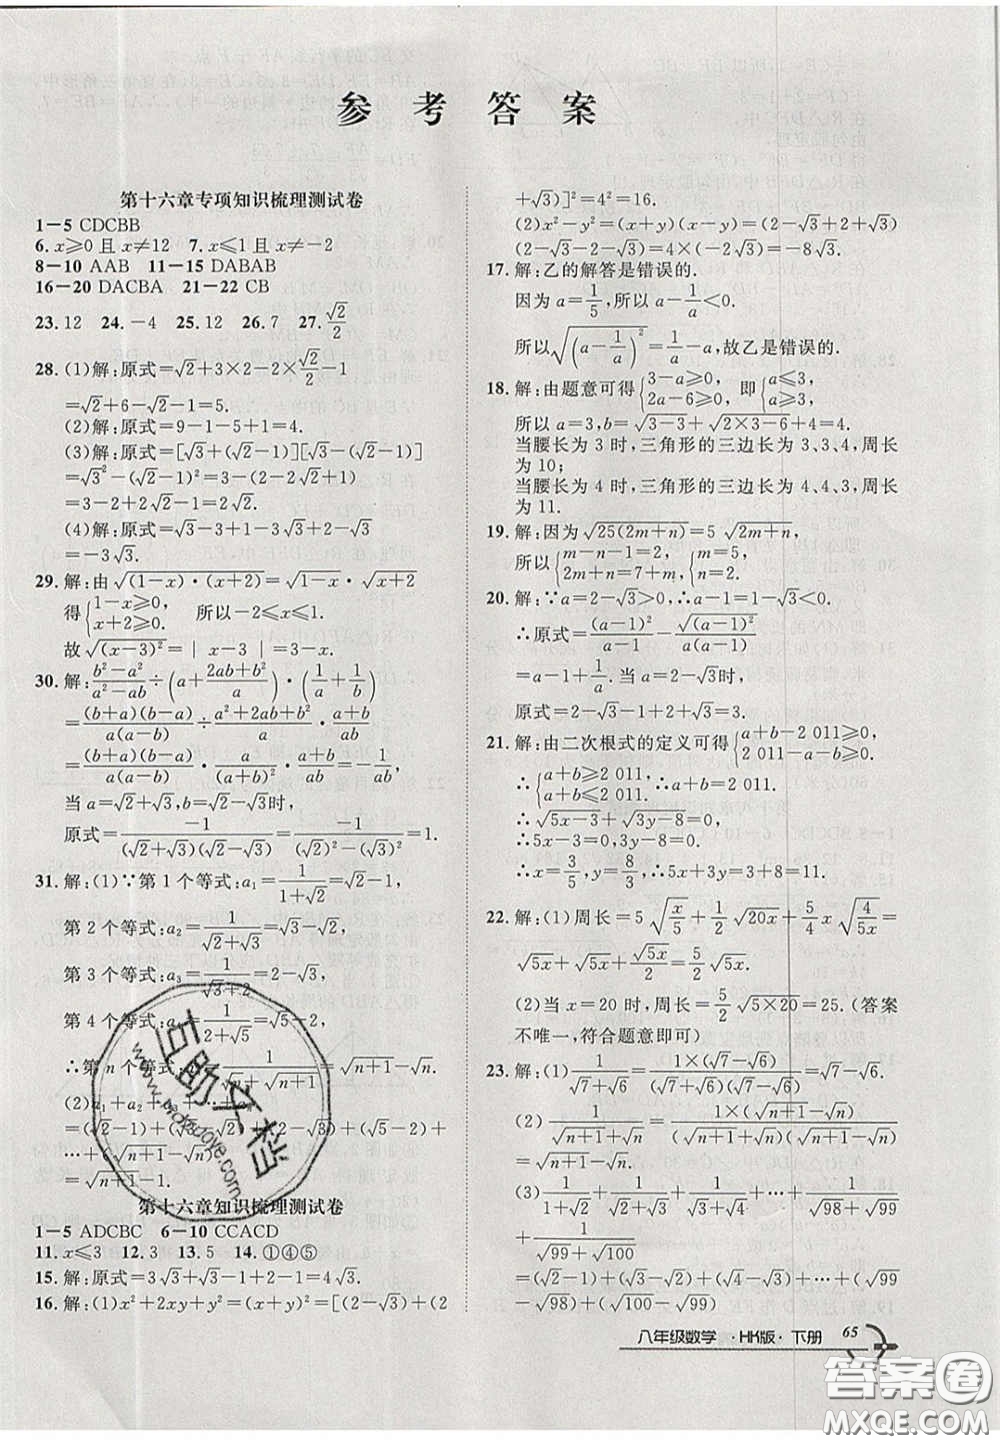 参考答案
第十六章专项知识梳理测试卷
1-5 CDCBB
6. x⩾0 且 x≠12 7. x⩽1 且 x≠-2
8-10 AAB 11-15 DABAB
16-20 DACBA 21-22 CB
23. 12 24. -4 25. 12 26. 7 27. √2/2
28. (1)解:原式=√2+3×2-2×√2/2-1
=√2+6-√2-1=5.
(2)解:原式=9-1-5+1=4.
(3)解:原式=[√3+(√2-1)][√3-(√2-1)]
=√3²-(√2-1)²=3-(2-2√2+1)
=3-2+2√2-1=2√2.
(4)解:原式=√3-3+1-3√3+2-√3
=-3√3.
29. 解:由√((1-x)·(x+2))=√(1-x)·√(x+2)
得{1-x⩾0, x+2⩾0. 所以-2⩽x⩽1.
故√((x-3)²)=| x-3 |=3-x.
30. 解:(b²-a²)/(a²-ab)÷(a+(2ab+b²)/a)·(1/a+1/b)
=(b+a)(b-a)/(a(a-b))÷(a²+2ab+b²)/a·(a+b)/(ab)
=(b+a)(b-a)/(a(a-b))·a/(a+b)²·(a+b)/(ab)=-1/(ab),
当 a=√2+√3,b=√2-√3时,
原式=-1/((√2+√3)(√2-√3))=-1/((√2)²-(√3)²)=1.
31. 解:(1)∵第 1 个等式:a₁=1/(1+√2)=√2-1,
第 2 个等式:a₂=1/(√2+√3)=√3-√2,
第 3 个等式:a₃=1/(√3+2)=2-√3,
第 4 个等式:a₄=1/(2+√5)=√5-2,
∴第 n 个等式:aₙ=1/(√n+√(n+1))=√(n+1)-√n.
(2)a₁+a₂+a₃+…+aₙ
=(√2-1)+(√3-√2)+(2-√3)+(√5-2)+
…+(√(n+1)-√n)
=√(n+1)-1.
第十六章知识梳理测试卷
1-5 ADCBC 6-10 CCACD
11. x⩽3 12. 3 13. 5 14. ①④⑤
15. 解:原式=3√3+√3-1+2-1=4√3.
16. 解:(1)x²+2xy+y²=(x+y)²=[(2-√3)+(2
+√3)]²=4²=16.
(2)x²-y²=(x+y)(x-y)=(2-√3+2+√3)
(2-√3-2-√3)=4×(-2√3)=-8√3.
17. 解:乙的解答是错误的.
因为 a=1/5,所以 a-1/a<0.
所以√((a-1/a)²)=1/a-a,故乙是错误的.
18. 解:由题意可得{3-a⩾0, 2a-6⩾0. 即{a⩽3, a⩾3.
所以 a=3,b=√(3-3)+√(2×3-6)+4=4.
当腰长为 3 时,三角形的三边长为 3、3、4,周长
为 10;
当腰长为 4 时,三角形的三边长为 4、4、3,周长
为 11.
19. 解:因为√(25(2m+n))=5 √(2m+n),
所以{m-n-1=2, 2m+n=7+m. {m=5, n=2.
20. 解:∵a=2-√3>0,∴a-1=1-√3<0.
∴原式=(a-1)²/(a-1)-√((a-1)²)/(a(a-1))
=a-1+1/a,当 a=2-√3时,
原式=2-√3-1+2+√3=3.
21. 解:由二次根式的定义可得{a+b-2 011⩾0, 2 011-a-b⩾0.
∴{a+b⩾2 011, a+b⩽2 011. ∴a+b=2 011.
∴√(5x-3)+√(3y-8)=0.
∴5x-3=0,3y-8=0.
∴x=3/5,y=8/3,∴5x+3y=3+8=11.
22. 解:(1)周长=5√(x/5)+1/2√(20x)+5/4x√(4/(5x))=
√(5x)+√(5x)+√(5x)/2=5/2√(5x).
(2)当 x=20 时,周长=5/2√(5×20)=25.(答案
不唯一,符合题意即可)
23. (1)1/(√7+√6)=1×(√7-√6)/((√7+√6)(√7-√6))=√7-√6.
(2)1/(√(n+1)+√n)=1×(√(n+1)-√n)/((√(n+1)+√n)(√(n+1)-√n))
=√(n+1)-√n.
(3)1/(1+√2)+1/(√2+√3)+1/(√3+√4)+…+1/(√98+√99)+
1/(√99+√100)
=(√2-1)+(√3-√2)+(√4-√3)+…+(√99
-√98)+(√100-√99)
八年级数学 ·HK版·下册 65
互助文档
www.hdzuoye.com
答案圈
MXQE.COM